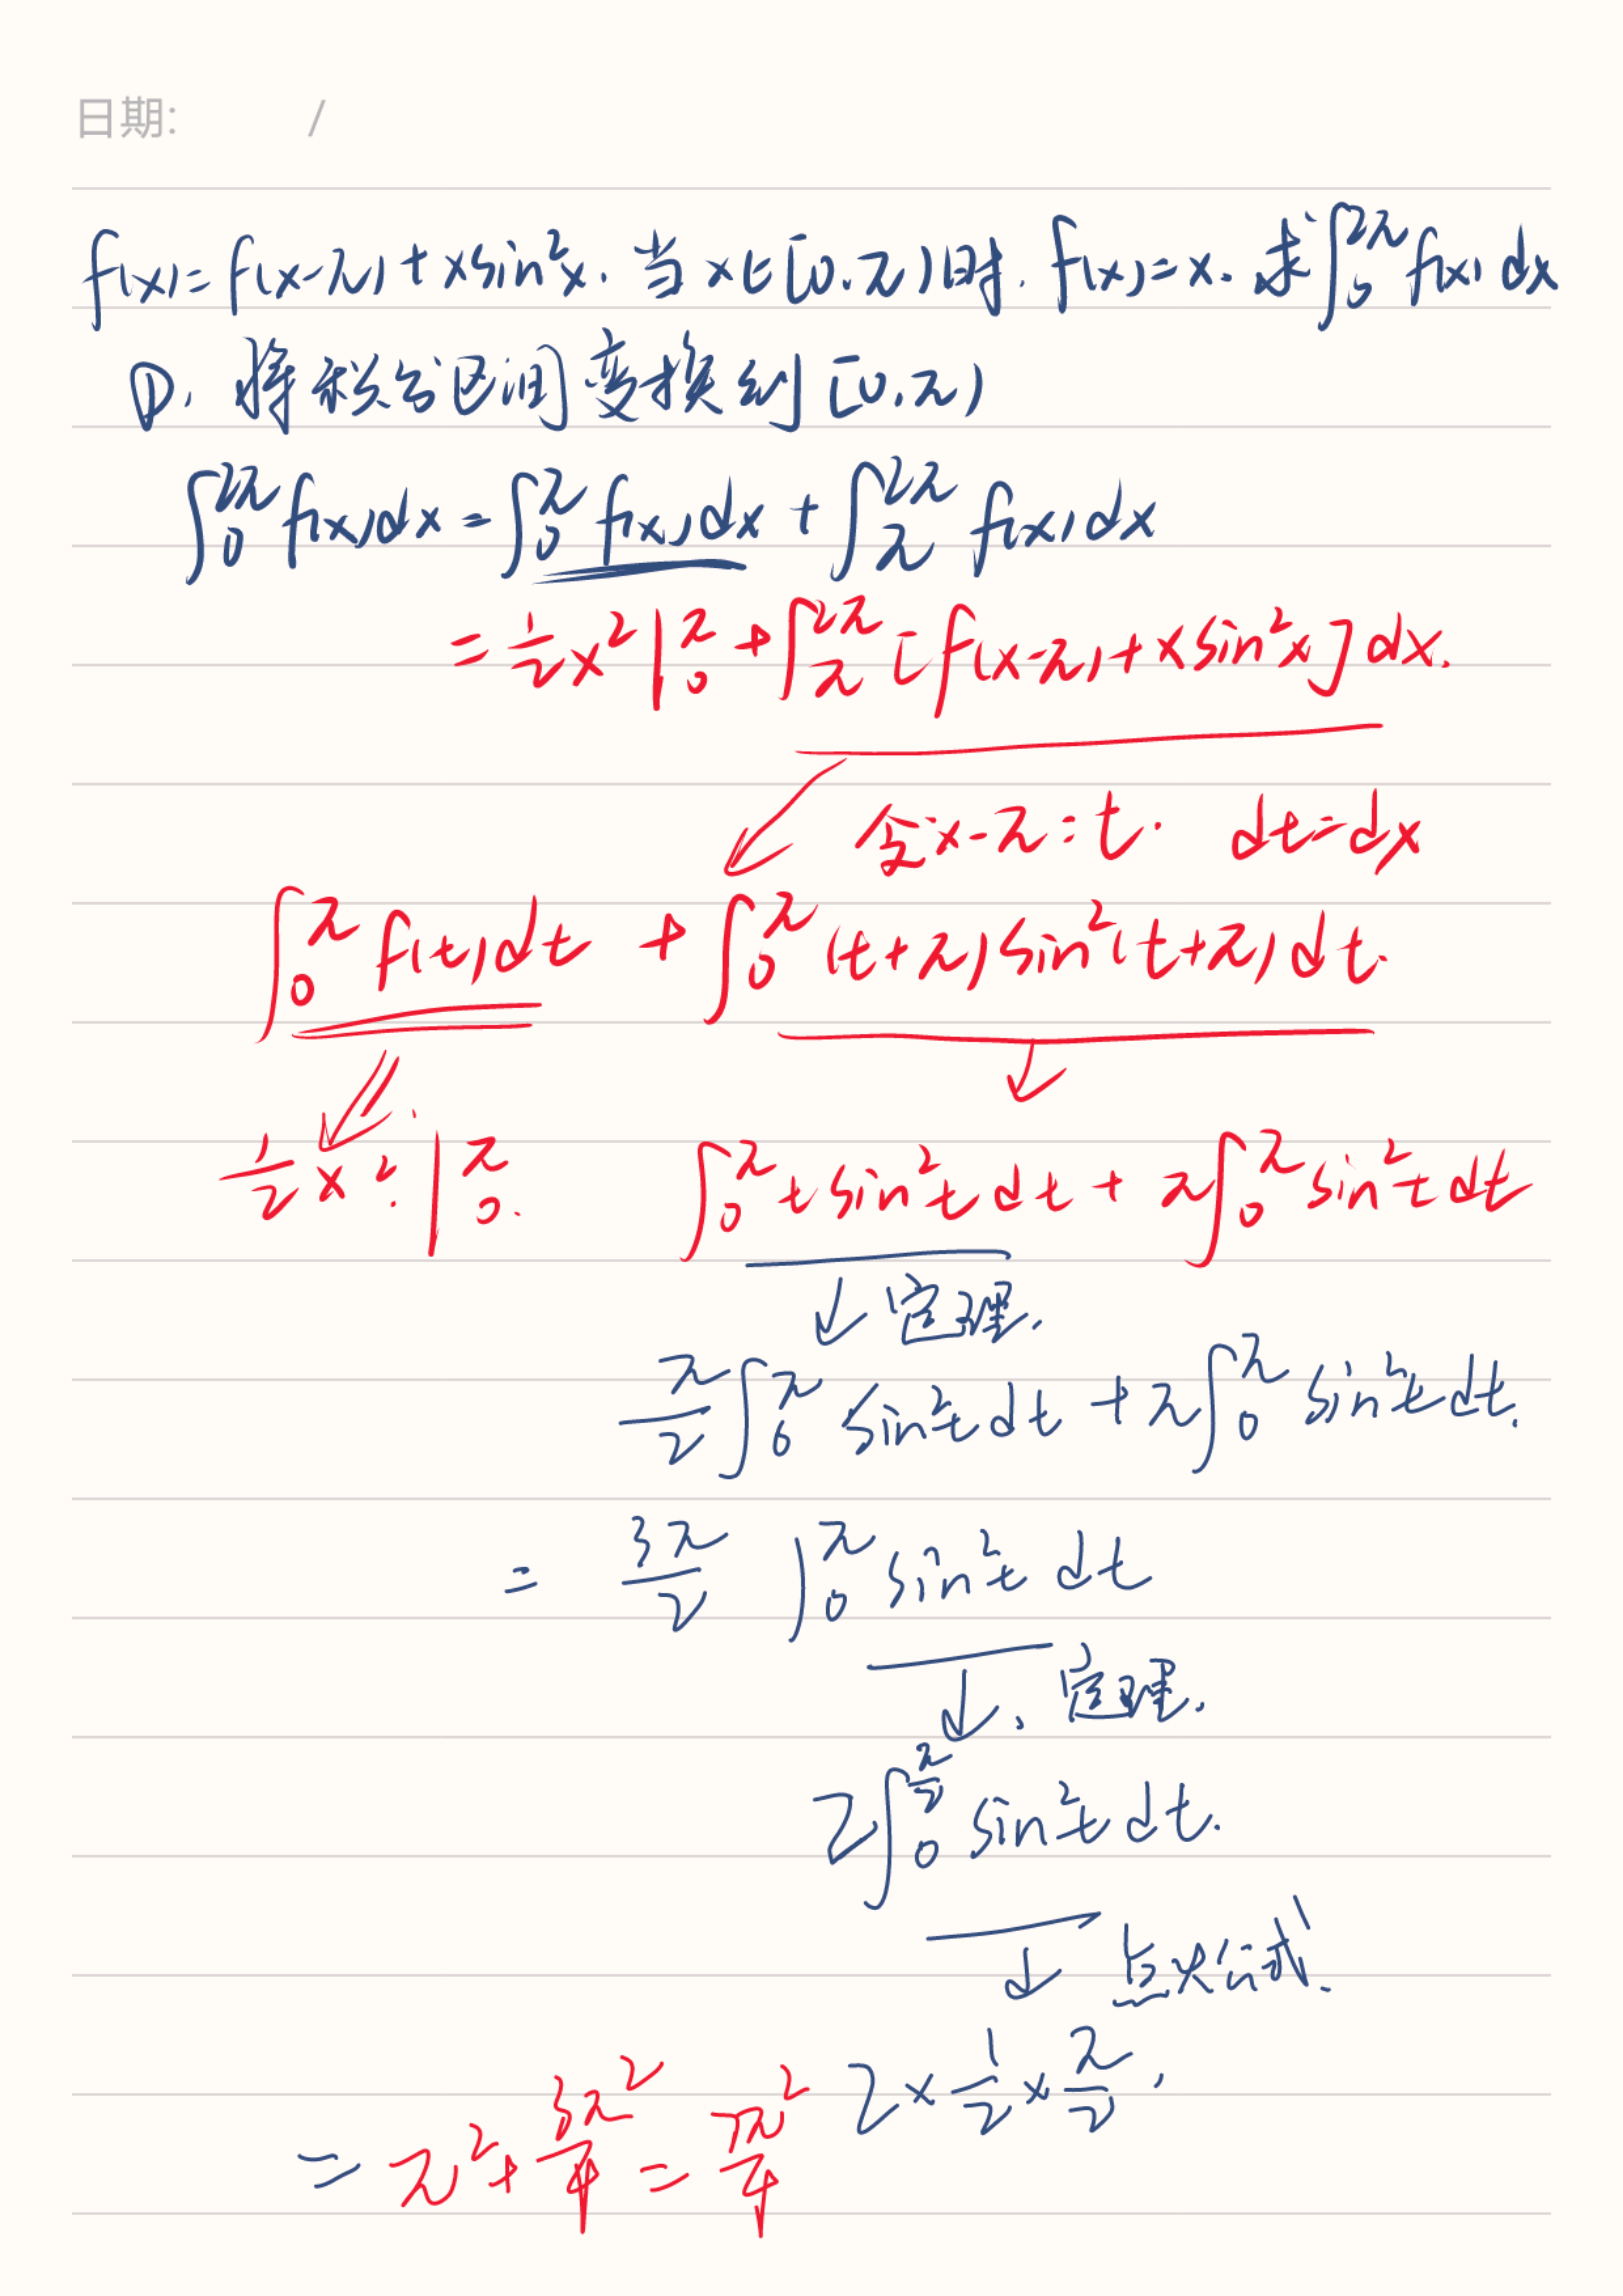 日期: /
f(x)=f(x-π)+xsin²x. 当x∈[0.π)时. f(x)=x. 求∫₀^{2π} f(x)dx
①. 将积分区间变换到[0.π)
∫₀^{2π} f(x)dx = ∫₀^{π} f(x)dx + ∫_π^{2π} f(x)dx
= ½x²|₀^π + ∫_π^{2π} [f(x-π)+xsin²x]dx.
令x-π=t. dt=dx
∫₀^π f(t)dt + ∫₀^π (t+π)sin²(t+π)dt.
½x²|₀^π. ∫₀^π tsin²tdt + π∫₀^π sin²tdt
↓ 定理.
π/2 ∫₀^π sin²tdt + π∫₀^π sin²tdt.
= 3π/2 ∫₀^π sin²t dt
↓. 定理.
2∫₀^{π/2} sin²tdt.
↓ 点火公式.
2×½×π/2.
= π²+3π²/4 = 7π²/4